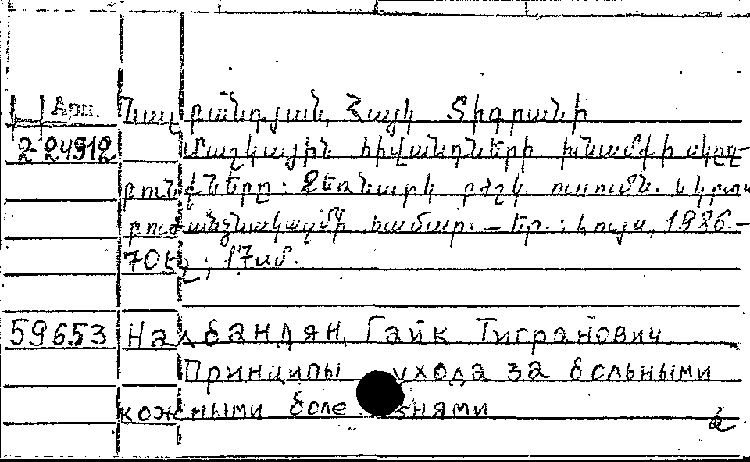 Арм. Նալբանդյան, Հայկ Տիգրանի
2 24912 Մաշկային հիվանդների խնամքի սկզ-
բունքները: Ձեռնարկ բժշկ. ուսումն.
համար. — Եր.: Լույս, 1986.—
70 էջ; 17սմ.
59653 Налбандян, Гайк Тигранович
Принципы ухода за больными
кожными болезнями